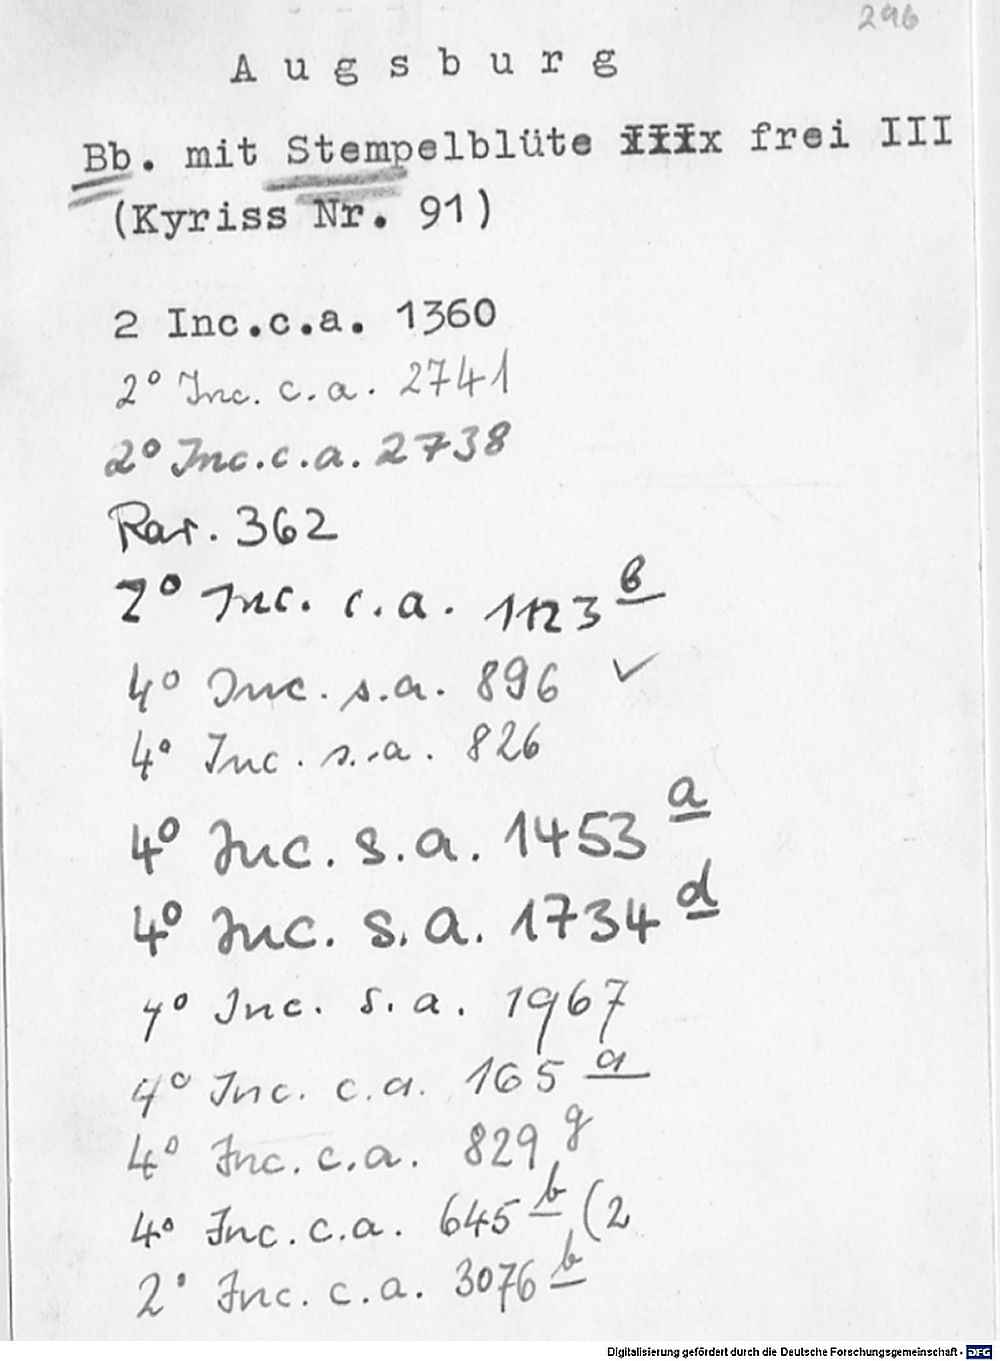 296
Augsburg
Bb. mit Stempelblüte IIIx frei III
(Kyriss Nr. 91)
2 Inc.c.a. 1360
2° Inc. c.a. 2741
2° Inc.c.a. 2738
Rar. 362
2° Inc. c.a. 1123 b
4° Inc. s.a. 896 ✓
4° Inc. s.a. 826
4° Inc. s.a. 1453 a
4° Inc. s.a. 1734 d
4° Inc. s.a. 1967
4° Inc. c.a. 165 a
4° Inc. c.a. 829 g
4° Inc. c.a. 645 b (2
2° Inc. c.a. 3076 b
Digitalisierung gefördert durch die Deutsche Forschungsgemeinschaft - DFG